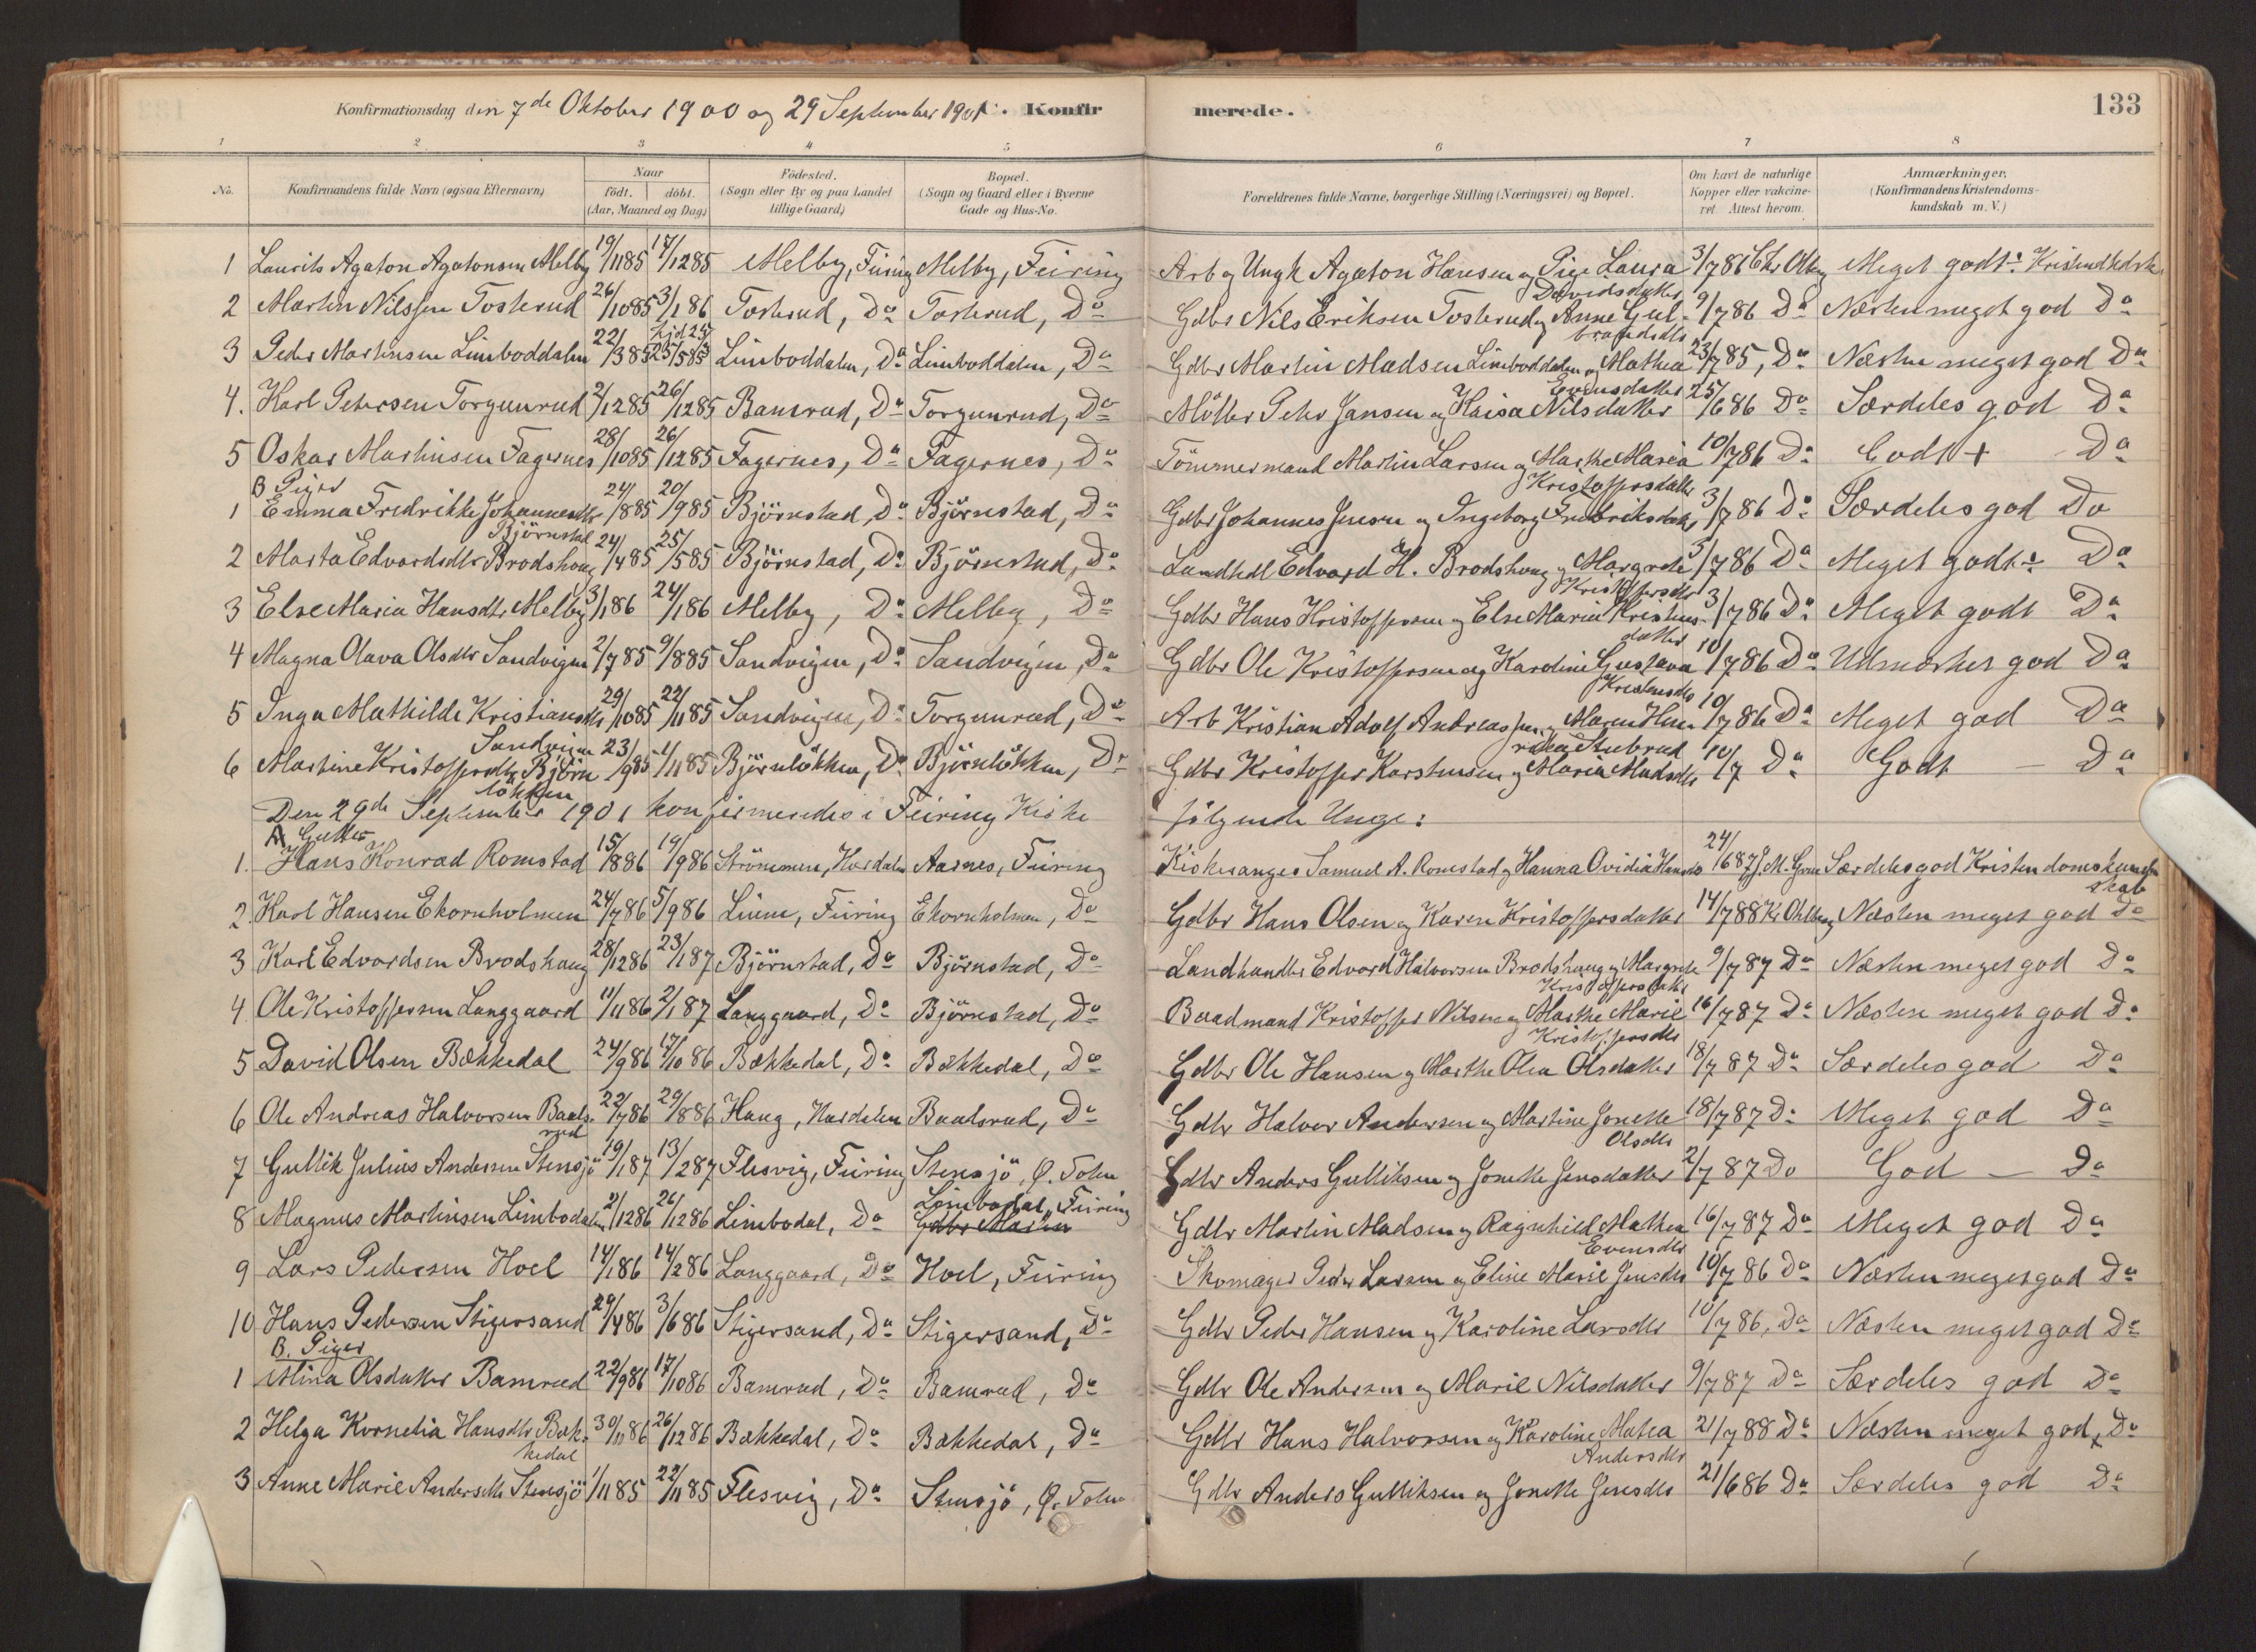 Konfirmationsdag den 7de Oktober 1900 og 29 September 1901 C. Konfirmerede. 133
1 2 3 4 5 6 7 8
No. Konfirmandens fulde Navn (ogsaa Efternavn) Naar født. døbt. (Aar, Maaned og Dag) Fødested. (Sogn eller By og paa Landet tillige Gaard) Bopæl. (Sogn og Gaard eller i Byerne Gade og Hus-No. Forældrenes fulde Navne, borgerlige Stilling (Næringsvei) og Bopæl. Om havt de naturlige Kopper eller vaccineret. Attest herom. Anmærkninger. (Konfirmandens Kristendomskundskab m. V.)
1 Laurits Agaton Agatonsen Melby 19/1185 17/1285 Melby, Feiring Melby, Feiring Arb og Ungk Agaton Hansen og Pige Laura Davidsdatter 3/786 Chr Olberg Meget godt ÷
2 Martin Nilssen Tosterud 26/1085 3/186 Tosterud, Do Tosterud, Do Gdbr Nils Eriksen Tosterud og Anne Gulbrandsdtr 9/786 Do Næsten meget god Do
3 Peder Martinsen Limboddalen 22/385 25/585 Limboddalen, Do Limboddalen, Do Gdbr Martin Madsen Limboddalen og Mathea Evensdatter 23/785, Do Næsten meget god Do
4. Karl Petersen Torgunrud 2/1285 26/1285 Bamrud, Do Torgunrud, Do Møller Peter Jansen og Kaisa Nilsdatter 25/686 Do Særdeles god Do
5 Oskar Martinsen Fagernes 28/1085 26/1285 Fagernes, Do Fagernes, Do Tømmermand Martin Larsen og Marthe Maria Kristoffersdatter 10/786 Do Godt + Do
B Piger
1 Emma Fredrikke Johannesdtr Bjørnstad 24/885 20/985 Bjørnstad, Do Bjørnstad, Do Gdbr Johannes Jensen og Ingeborg Fredriksdatter 3/786 Do Særdeles god Do
2 Marta Edvardsdtr Brodshaug 24/485 25/585 Bjørnstad, Do Bjørnstad, Do Landhdl Edvard H. Brodshaug og Margrete Kristoffersdtr 3/786 Do Meget godt ÷ Do
3 Else Maria Hansdtr Melby 3/186 24/186 Melby, Do Melby, Do Gdbr Hans Kristoffersen og Else Marie Kristiansdatter 3/786 Do Meget godt Do
4 Magna Olava Olsdtr Sandvigen 2/785 9/885 Sandvigen, Do Sandvigen, Do Gdbr Ole Kristoffersen og Karoline Gustava Kristensdtr 10/786 Do Udmærket god Do
5 Inga Mathilde Kristiansdtr Sandvigen 29/1085 22/1185 Sandvigen, Do Torgunrud, Do Arb Kristian Adolf Andreassen og Maren Henrikka Stubrud 10/786 Do Meget god Do
6 Martine Kristoffersdtr Bjørnløkken 23/985 1/1185 Bjørnløkken, Do Bjørnløkken, Do Gdbr Kristoffer Karstensen og Maria Madsdtr 10/7 Do Godt — Do
Den 29de September 1901 konfirmeredes i Feiring Kirke følgende Unge:
A Gutter
1. Hans Konrad Romstad 15/886 19/986 Strømmen, Hurdalen Aasnes, Feiring Kirkesanger Samuel A. Romstad og Hanna Ovidia Hansdtr 24/687 Særdeles god Kristendomskundskab
2. Karl Hansen Ekornholmen 24/786 5/986 Linne, Feiring Ekornholmen, Do Gdbr Hans Olsen og Karen Kristoffersdatter 14/788 Næsten meget god Do
3 Karl Edvardsen Brodshaug 28/1286 23/187 Bjørnstad, Do Bjørnstad, Do Landhandler Edvard Halvorsen Brodshaug og Margrete Kristoffersdatr 9/787 Do Næsten meget god Do
4. Ole Kristoffersen Langgaard 11/1186 2/187 Langgaard, Do Bjørnstad, Do Baadmand Kristoffer Nilsen og Marthe Marie Kristoffersdtr 16/787 Do Næsten meget god Do
5 David Olsen Bækkedal 24/986 17/1086 Bækkedal, Do Bækkedal, Do Gdbr Ole Hansen og Marthe Olea Olsdatter 18/787 Do Særdeles god Do
6 Ole Andreas Halvorsen Baalsrud 22/786 29/886 Haug, Hurdalen Baalsrud, Do Gdbr Halvor Andersen og Martine Jonette Olsdtr 18/787 Do Meget god Do
7 Gullik Julius Andersen Stensjø 19/187 13/287 Flesvig, Feiring Stensjø, Ø. Toten Gdbr Anders Gulliksen og Jonette Jensdatter 2/787 Do God — Do
8 Magnus Martinsen Limbodalen 2/1286 26/1286 Limbodal, Do Limbodal, Feiring Gdbr Martin Gdbr Martin Madsen og Ragnhild Mathea Evensdtr 16/787 Do Meget god Do
9 Lars Pedersen Hoel 14/186 14/286 Langgaard, Do Hoel, Feiring Skomager Peder Larsen og Eline Marie Jensdtr 10/786 Do Næsten meget god Do
10 Hans Pedersen Stigersand 29/486 3/686 Stigersand, Do Stigersand, Do Gdbr Peder Hansen og Karoline Larsdtr 10/786, Do Næsten meget god Do
B. Piger
1 Mina Olsdatter Bamrud 22/986 17/1086 Bamrud, Do Bamrud, Do Gdbr Ole Andersen og Marie Nilsdatter 9/787 Do Særdeles god Do
2 Helga Kornelia Hansdtr Bækkedal 30/1186 26/1286 Bækkedal, Do Bækkedal, Do Gdbr Hans Halvorsen og Karoline Matea Andersdtr 21/788 Do Næsten meget god, Do
3 Anne Marie Andersdtr Stensjø 1/1185 22/1185 Flesvig, Do Stensjø, Ø. Toten Gdbr Anders Gulliksen og Jonette Jensdtr 21/686 Do Særdeles god Do